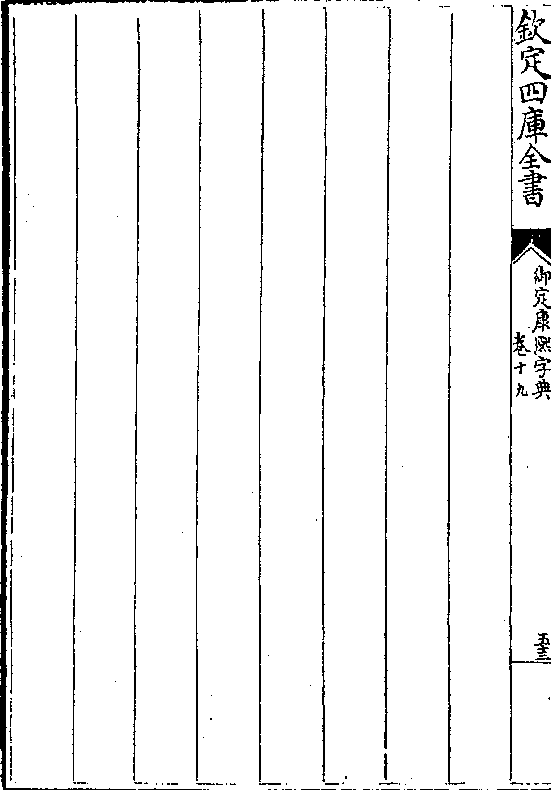 欽定四庫全書
御定康熙字典
卷十九
五十三